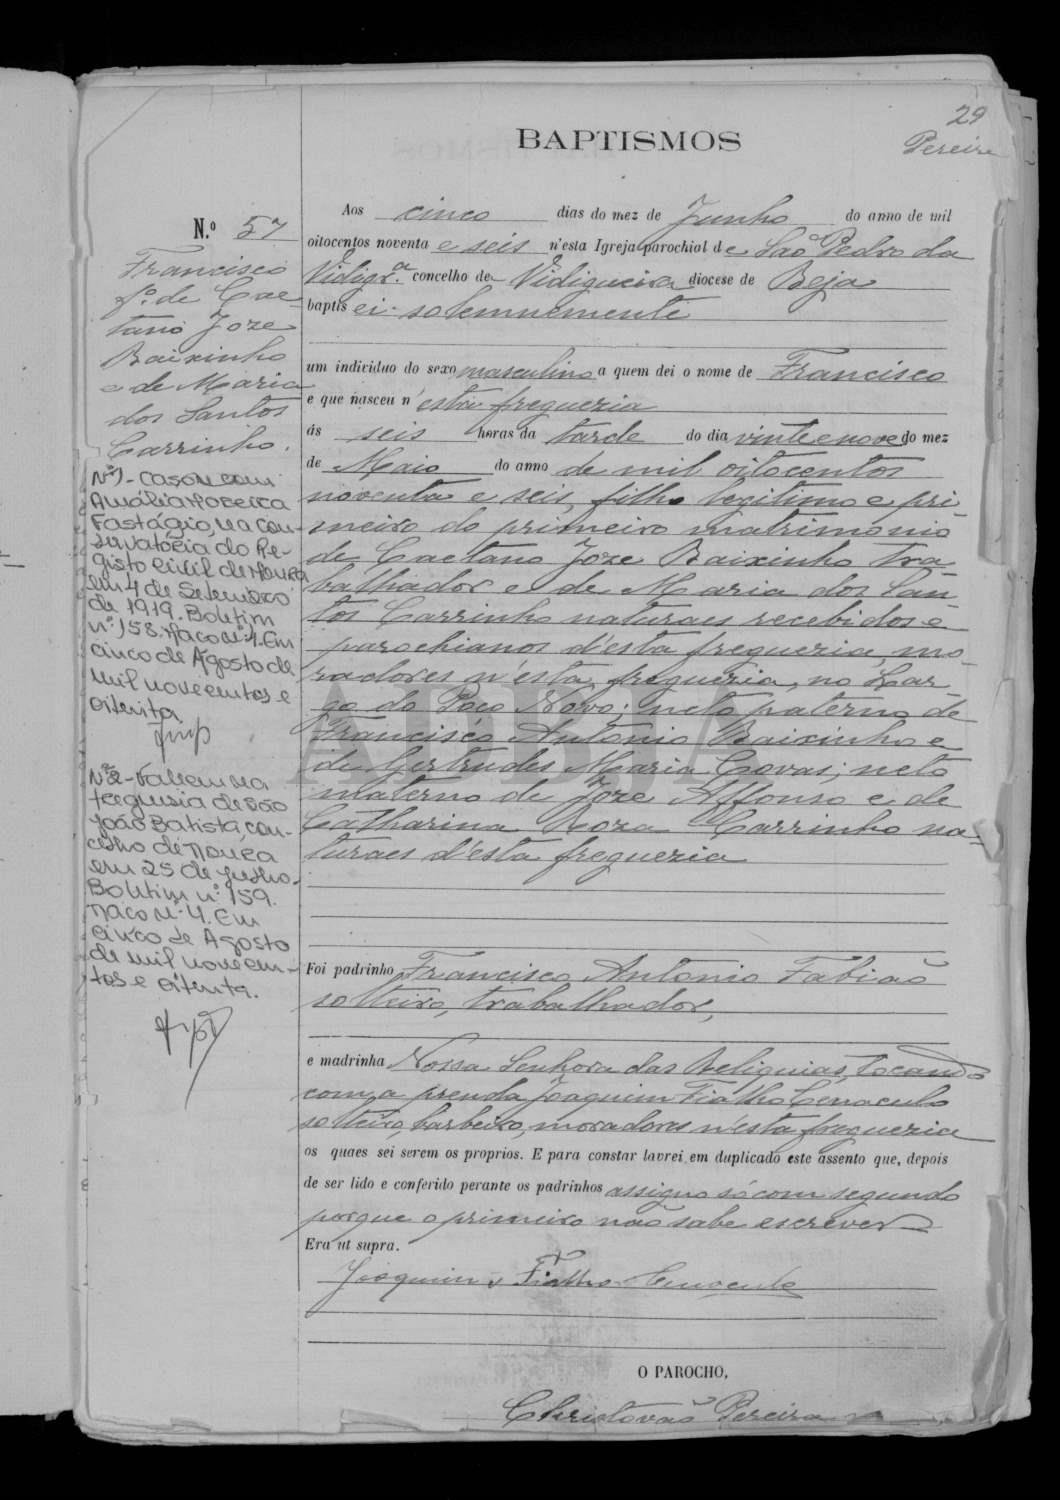 29
Pereira
BAPTISMOS
N.º 57
Francisco
f.º de Cae-
tano Joze
Baixinho
e de Maria
dos Santos
Carrinho.
Nº1 - Casou com
Amália
Fastágio, na con-
servatória do Re-
gisto Civil de Moura
em 4 de Setembro
de 1919. Boletim
nº 158. Maco Nº 4. Em
cinco de Agosto de
mil novecentos e
oitenta
Nº2 - Faleceu na
freguesia de São
João Batista, con-
celho de Moura
em 25 de Julho.
Boletim nº 159.
Maco Nº 4. Em
cinco de Agosto
de mil novecen-
tos e oitenta.
Aos cinco dias do mez de Junho do anno de mil
oitocentos noventa e seis n'esta Igreja parochial de São Pedro da
Vidigr.ª concelho de Vidigueira diocese de Beja
baptisei solemnemente
um individuo do sexo masculino a quem dei o nome de Francisco
e que nasceu n'esta freguezia
ás seis horas da tarde do dia vinte e nove do mez
de Maio do anno de mil oitocentos
noventa e seis, filho legitimo e pri-
meiro do primeiro matrimonio
de Caetano Joze Baixinho tra-
balhador e de Maria dos San-
tos Carrinho naturaes recebidos e
parochianos d'esta freguezia, mo-
radores n'esta freguezia, no Lar-
go do Poço Novo; neto paterno de
Francisco Antonio Baixinho e
de Gertrudes Maria Covas; neto
materno de Joze Affonso e de
Catharina Roza Carrinho na-
turaes d'esta freguezia
Foi padrinho Francisco Antonio Fabião
solteiro, trabalhador,
e madrinha Nossa Senhora das Reliquias, tocando
com a prenda Joaquim Fialho Cenaculo
solteiro, barbeiro, moradores n'esta freguezia
os quaes sei serem os proprios. E para constar lavrei em duplicado este assento que, depois
de ser lido e conferido perante os padrinhos assigno só com segundo
porque o primeiro não sabe escrever
Era ut supra.
Joaquim Fialho Cenaculo
O PAROCHO,
Christovão Pereira